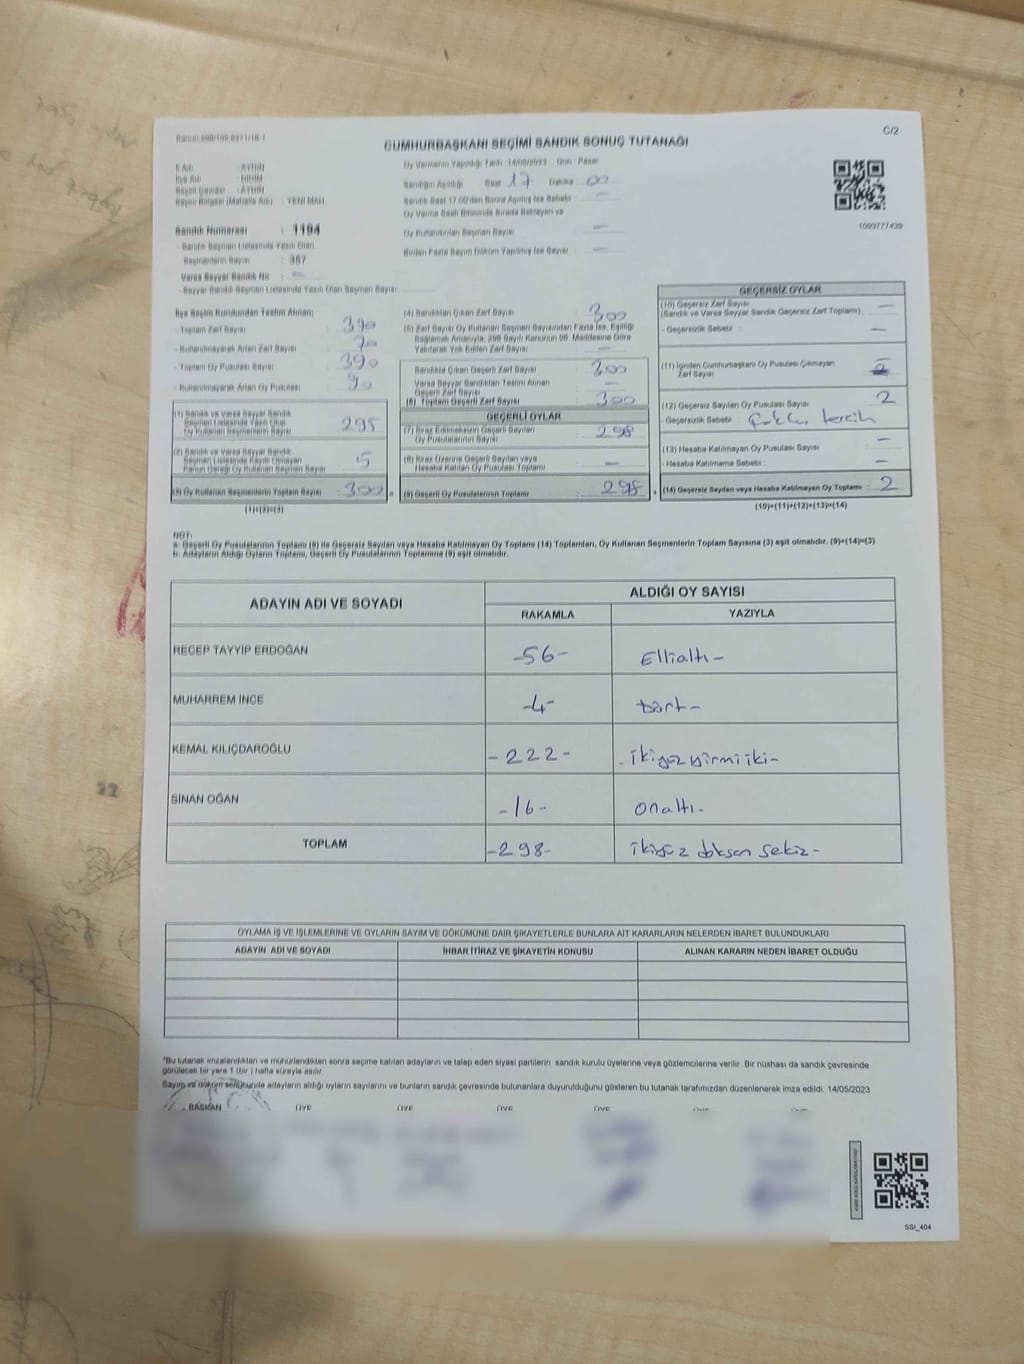 C/2
CUMHURBAŞKANI SEÇİMİ SANDIK SONUÇ TUTANAĞI
İl Adı : AYDIN
İlçe Adı
Seçim Çevresi : AYDIN
Seçim Bölgesi (Mahalle Adı) : YENİ MAH
Oy Vermenin Yapıldığı Tarih 14/05/2023 Gün : Pazar
Sandığın Açıldığı Saat 17 Dakika 00
Sandık Saat 17.00'den Sonra Açılmış İse Sebebi : -
Oy Verme Saati Bitiminde Sırada Bekleyen ve
Oy Kullandırılan Seçmen Sayısı -
Birden Fazla Sayım Döküm Yapılmış İse Sayısı -
Sandık Numarası : 1194
- Sandık Seçmen Listesinde Yazılı Olan
Seçmenlerin Sayısı : 387
Varsa Seyyar Sandık No : -
- Seyyar Sandık Seçmen Listesinde Yazılı Olan Seçmen Sayısı
İlçe Seçim Kurulundan Teslim Alınan;
- Toplam Zarf Sayısı 390
- Kullanılmayarak Artan Zarf Sayısı
- Toplam Oy Pusulası 390
- Kullanılmayarak Artan Oy Pusulası 90
(1) Sandık ve Varsa Seyyar Sandık
Seçmen Listesinde Yazılı Olup
Oy Kullanan Seçmenlerin Sayısı 295
(2) Sandık ve Varsa Seyyar Sandık
Seçmen Listesinde Kayıtlı Olmayan
Kanun Gereği Oy Kullanan Seçmen Sayısı 5
(3) Oy Kullanan Seçmenlerin Toplam Sayısı 300
(1)+(2)=(3)
(4) Sandıktan Çıkan Zarf Sayısı 300
(5) Zarf Sayısı Oy Kullanan Seçmen Sayısından Fazla İse, Eşitliği
Sağlamak Amacıyla; 298 Sayılı Kanunun 98. Maddesine Göre
Yakılarak Yok Edilen Zarf Sayısı -
Sandıkta Çıkan Geçerli Zarf Sayısı 300
Varsa Seyyar Sandıktan Teslim Alınan
Geçerli Zarf Sayısı -
(6) Toplam Geçerli Zarf Sayısı 300
GEÇERLİ OYLAR
(7) İtiraz Edilmeksizin Geçerli Sayılan
Oy Pusulalarının Sayısı 298
(8) İtiraz Üzerine Geçerli Sayılan veya
Hesaba Katılan Oy Pusulası Toplamı -
(9) Geçerli Oy Pusulalarının Toplamı 298
1093777439
GEÇERSİZ OYLAR
(10) Geçersiz Zarf Sayısı
(Sandık ve Varsa Seyyar Sandık Geçersiz Zarf Toplamı) -
- Geçersizlik Sebebi : -
(11) İçinden Cumhurbaşkanı Oy Pusulası Çıkmayan
Zarf Sayısı
(12) Geçersiz Sayılan Oy Pusulası Sayısı 2
- Geçersizlik Sebebi : tercih
(13) Hesaba Katılmayan Oy Pusulası Sayısı -
- Hesaba Katılmama Sebebi : -
(14) Geçersiz Sayılan veya Hesaba Katılmayan Oy Toplamı 2
(10)+(11)+(12)+(13)=(14)
NOT:
a- Geçerli Oy Pusulalarının Toplamı (9) ile Geçersiz Sayılan veya Hesaba Katılmayan Oy Toplamı (14) Toplamları, Oy Kullanan Seçmenlerin Toplam Sayısına (3) eşit olmalıdır. (9)+(14)=(3)
b- Adayların Aldığı Oyların Toplamı, Geçerli Oy Pusulalarının Toplamına (9) eşit olmalıdır.
ADAYIN ADI VE SOYADI ALDIĞI OY SAYISI
RAKAMLA YAZIYLA
RECEP TAYYİP ERDOĞAN -56- Ellialtı-
MUHARREM İNCE -4- Dört-
KEMAL KILIÇDAROĞLU -222- ikiyüz yirmiiki-
SİNAN OĞAN -16- onaltı-
TOPLAM -298- ikiyüz doksan sekiz-
OYLAMA İŞ VE İŞLEMLERİNE VE OYLARIN SAYIM VE DÖKÜMÜNE DAİR ŞİKAYETLERLE BUNLARA AİT KARARLARIN NELERDEN İBARET BULUNDUKLARI
ADAYIN ADI VE SOYADI İHBAR İTİRAZ VE ŞİKAYETİN KONUSU ALINAN KARARIN NEDEN İBARET OLDUĞU
*Bu tutanak imzalandıktan ve mühürlendikten sonra seçime katılan adayların ve talep eden siyasi partilerin sandık kurulu üyelerine veya gözlemcilerine verilir. Bir nüshası da sandık çevresinde
görülecek bir yere 1 (bir ) hafta süreyle asılır.
Sayım ve döküm sonucunda adayların aldığı oyların sayılarını ve bunların sandık çevresinde bulunanlara duyurulduğunu gösteren bu tutanak tarafımızdan düzenlenerek imza edildi. 14/05/2023
BAŞKAN ÜYE ÜYE ÜYE ÜYE ÜYE ÜYE
SSI_404
22